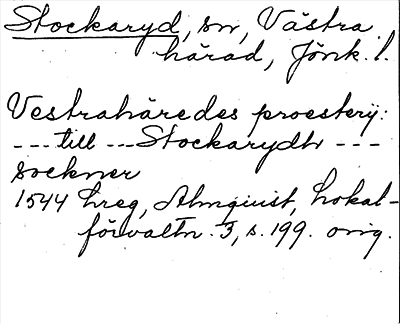 Stockaryd, sn, Västra
härad, Jönk. l.
Vestrahäredes proesterij:
--- till --- Stockarydh ---
sockner
1544 hreg, Almquist, Lokal-
förvaltn. 3, s. 199. orig.